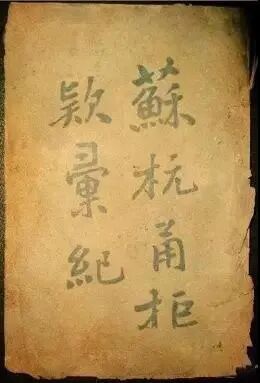 蘇杭甬拒
欵彙紀